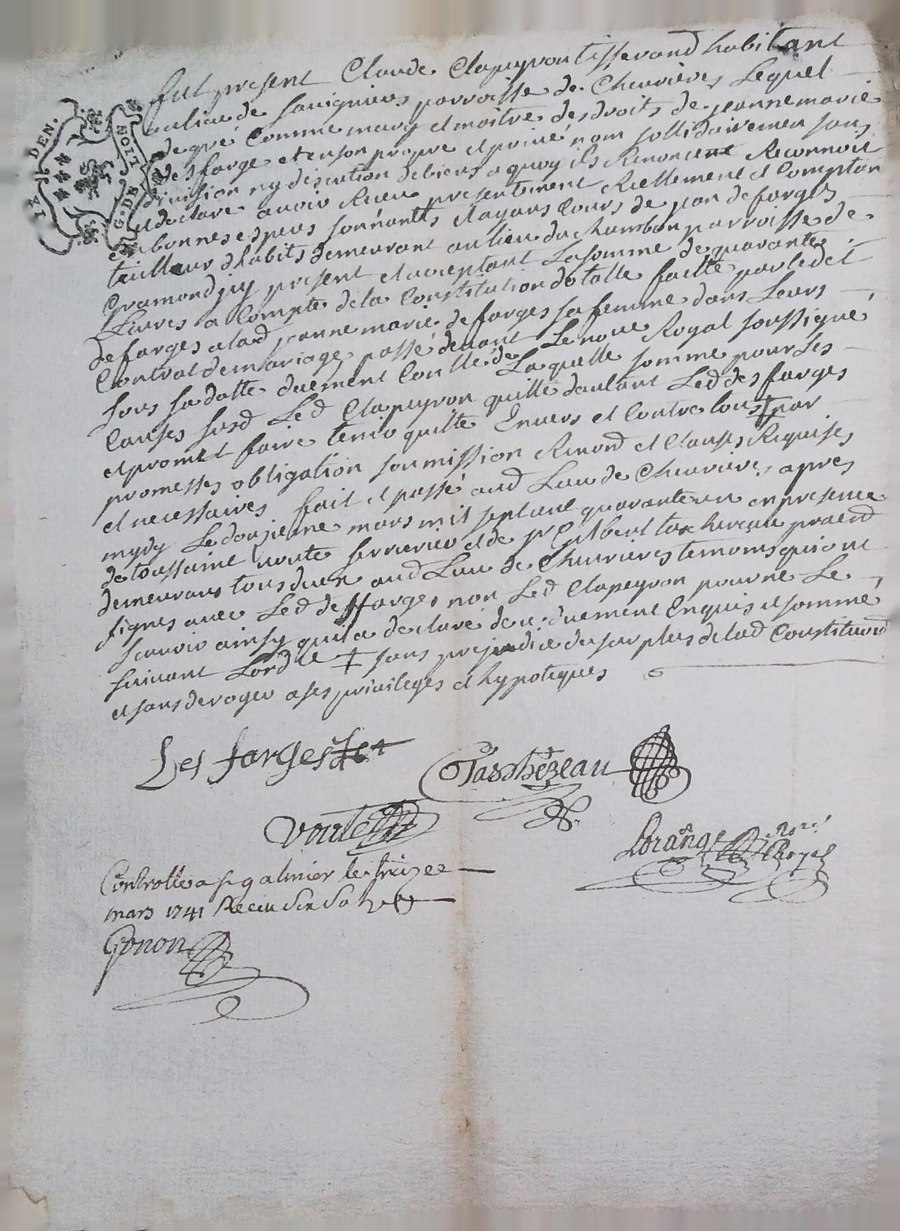 IX DEN.
NOIT
G. DE
fut present Claude Clapeyron tisserand habitant
au lieu de Savignieres parroisse de Chevrières Lequel
de gré Comme mary et maitre des droits de jeanne marie
desfarge et en son propre et privé nom sollidairemen sans
division ny discution de biens a quoy ils Renoncent Reconnoit
et declare avoir Receu presentement Riellement et Comptan
en bonnes espeses sonnants etayans Cours de jean deforges
tailleur dhabits demeurant au lieu du chambon parroisse de
Gramond cy present et acceptant La somme de quarante
Livres a Compte de la Constitution dotalle faitte par ledit
deforges a lad jeanne marie deforges sa femme dans Leurs
Contrat de mariage passé devant Le nore Royal soussigné
sous sa datte duement Conllé de Laquelle somme pour Les
Causes susd Led Clapeyron quitte dautant Led desfarges
et promet faire tenir quitte Envers et Contre tous par
promesses obligation soumission Renond et Clauses Requises
et necessaires fait et passé aud Lieu de Chevrières apres
mydy Le douzieme mars mil sept cent quarante un en presence
de toussaint voute serrurier et de sr Gilbert
demeurans tous deux aud Lieu de Chevrieres temoins qui ont
signés avec Led desfforges non Led Clapeyron pour ne Le
scavoir ainsy quil a declaré de ce duement Enquis et sommé
suivant Lordce ‡ sans prejudice du surplus de lad Constitution
et sans deroger a ses privileges et hypoteques
Des farges
voute
Lorange Nore Royal
Controllé a st galmier le treize
mars 1741 Receu
Gonon